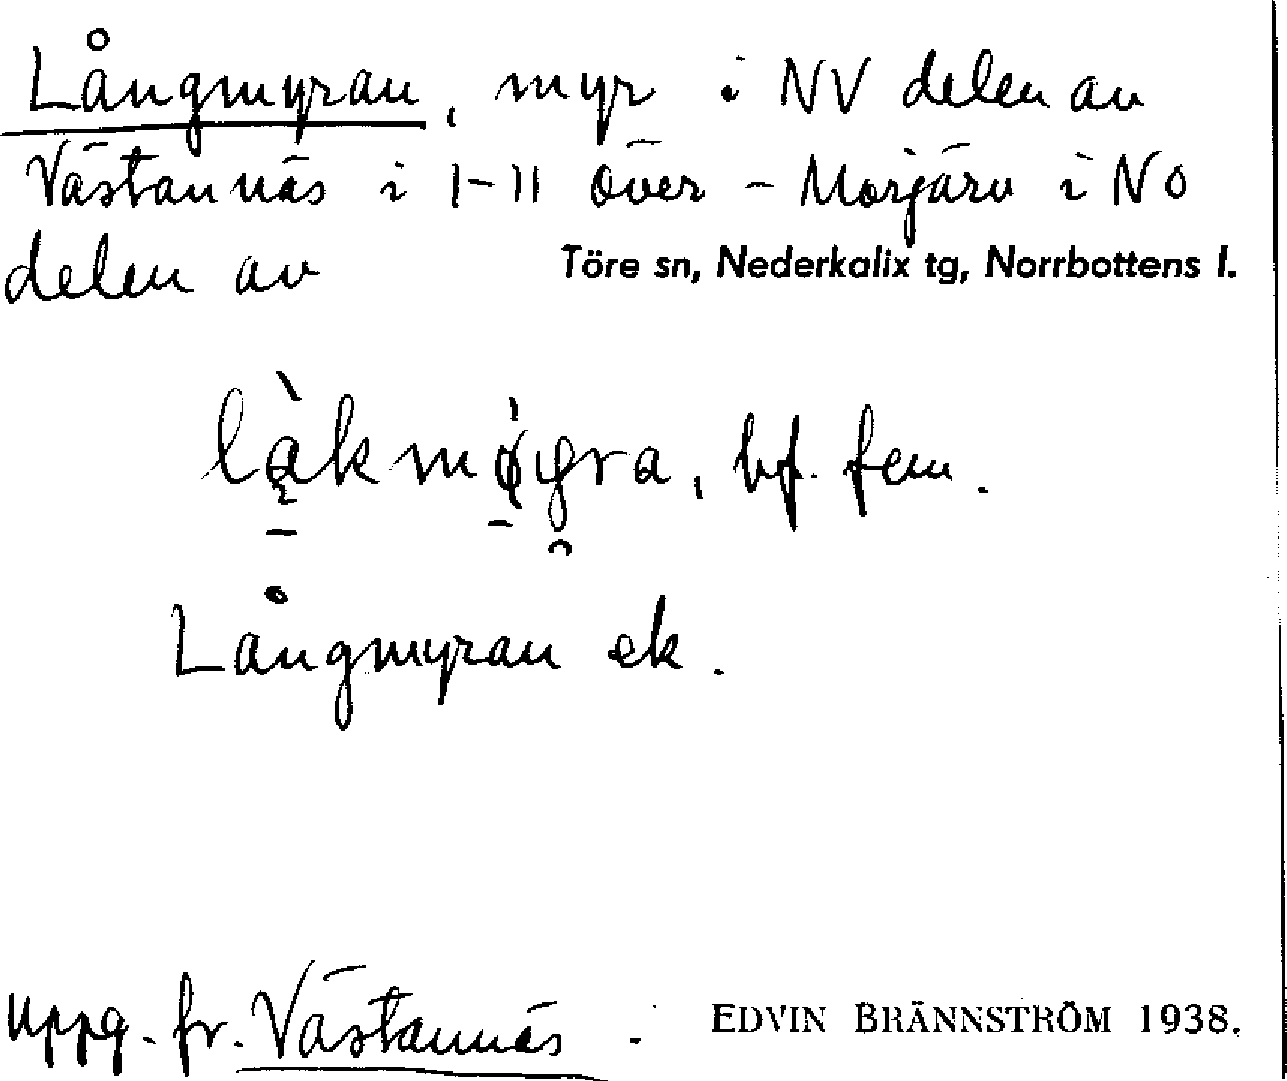 Långmyran, myr i NV delen av
Västannäs i I-II Över-Morjärv i NO
delen av Töre sn, Nederkalix tg, Norrbottens l.
bf. fem.
Långmyran ek.
Uppg. fr. Västannäs. EDVIN BRÄNNSTRÖM 1938.